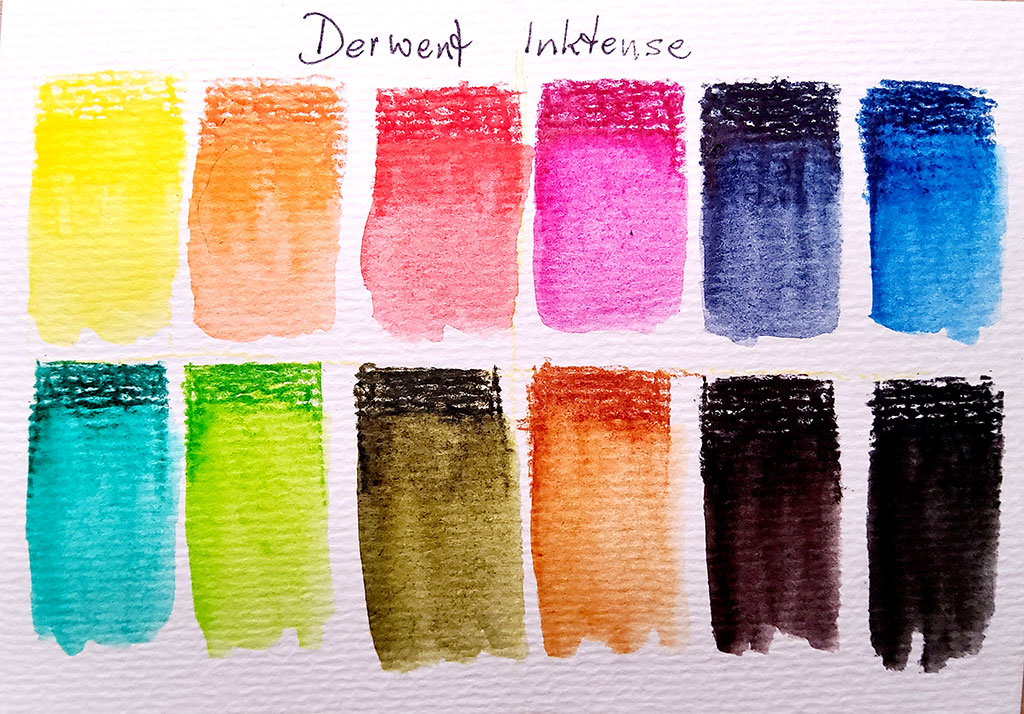 Derwent Inktense